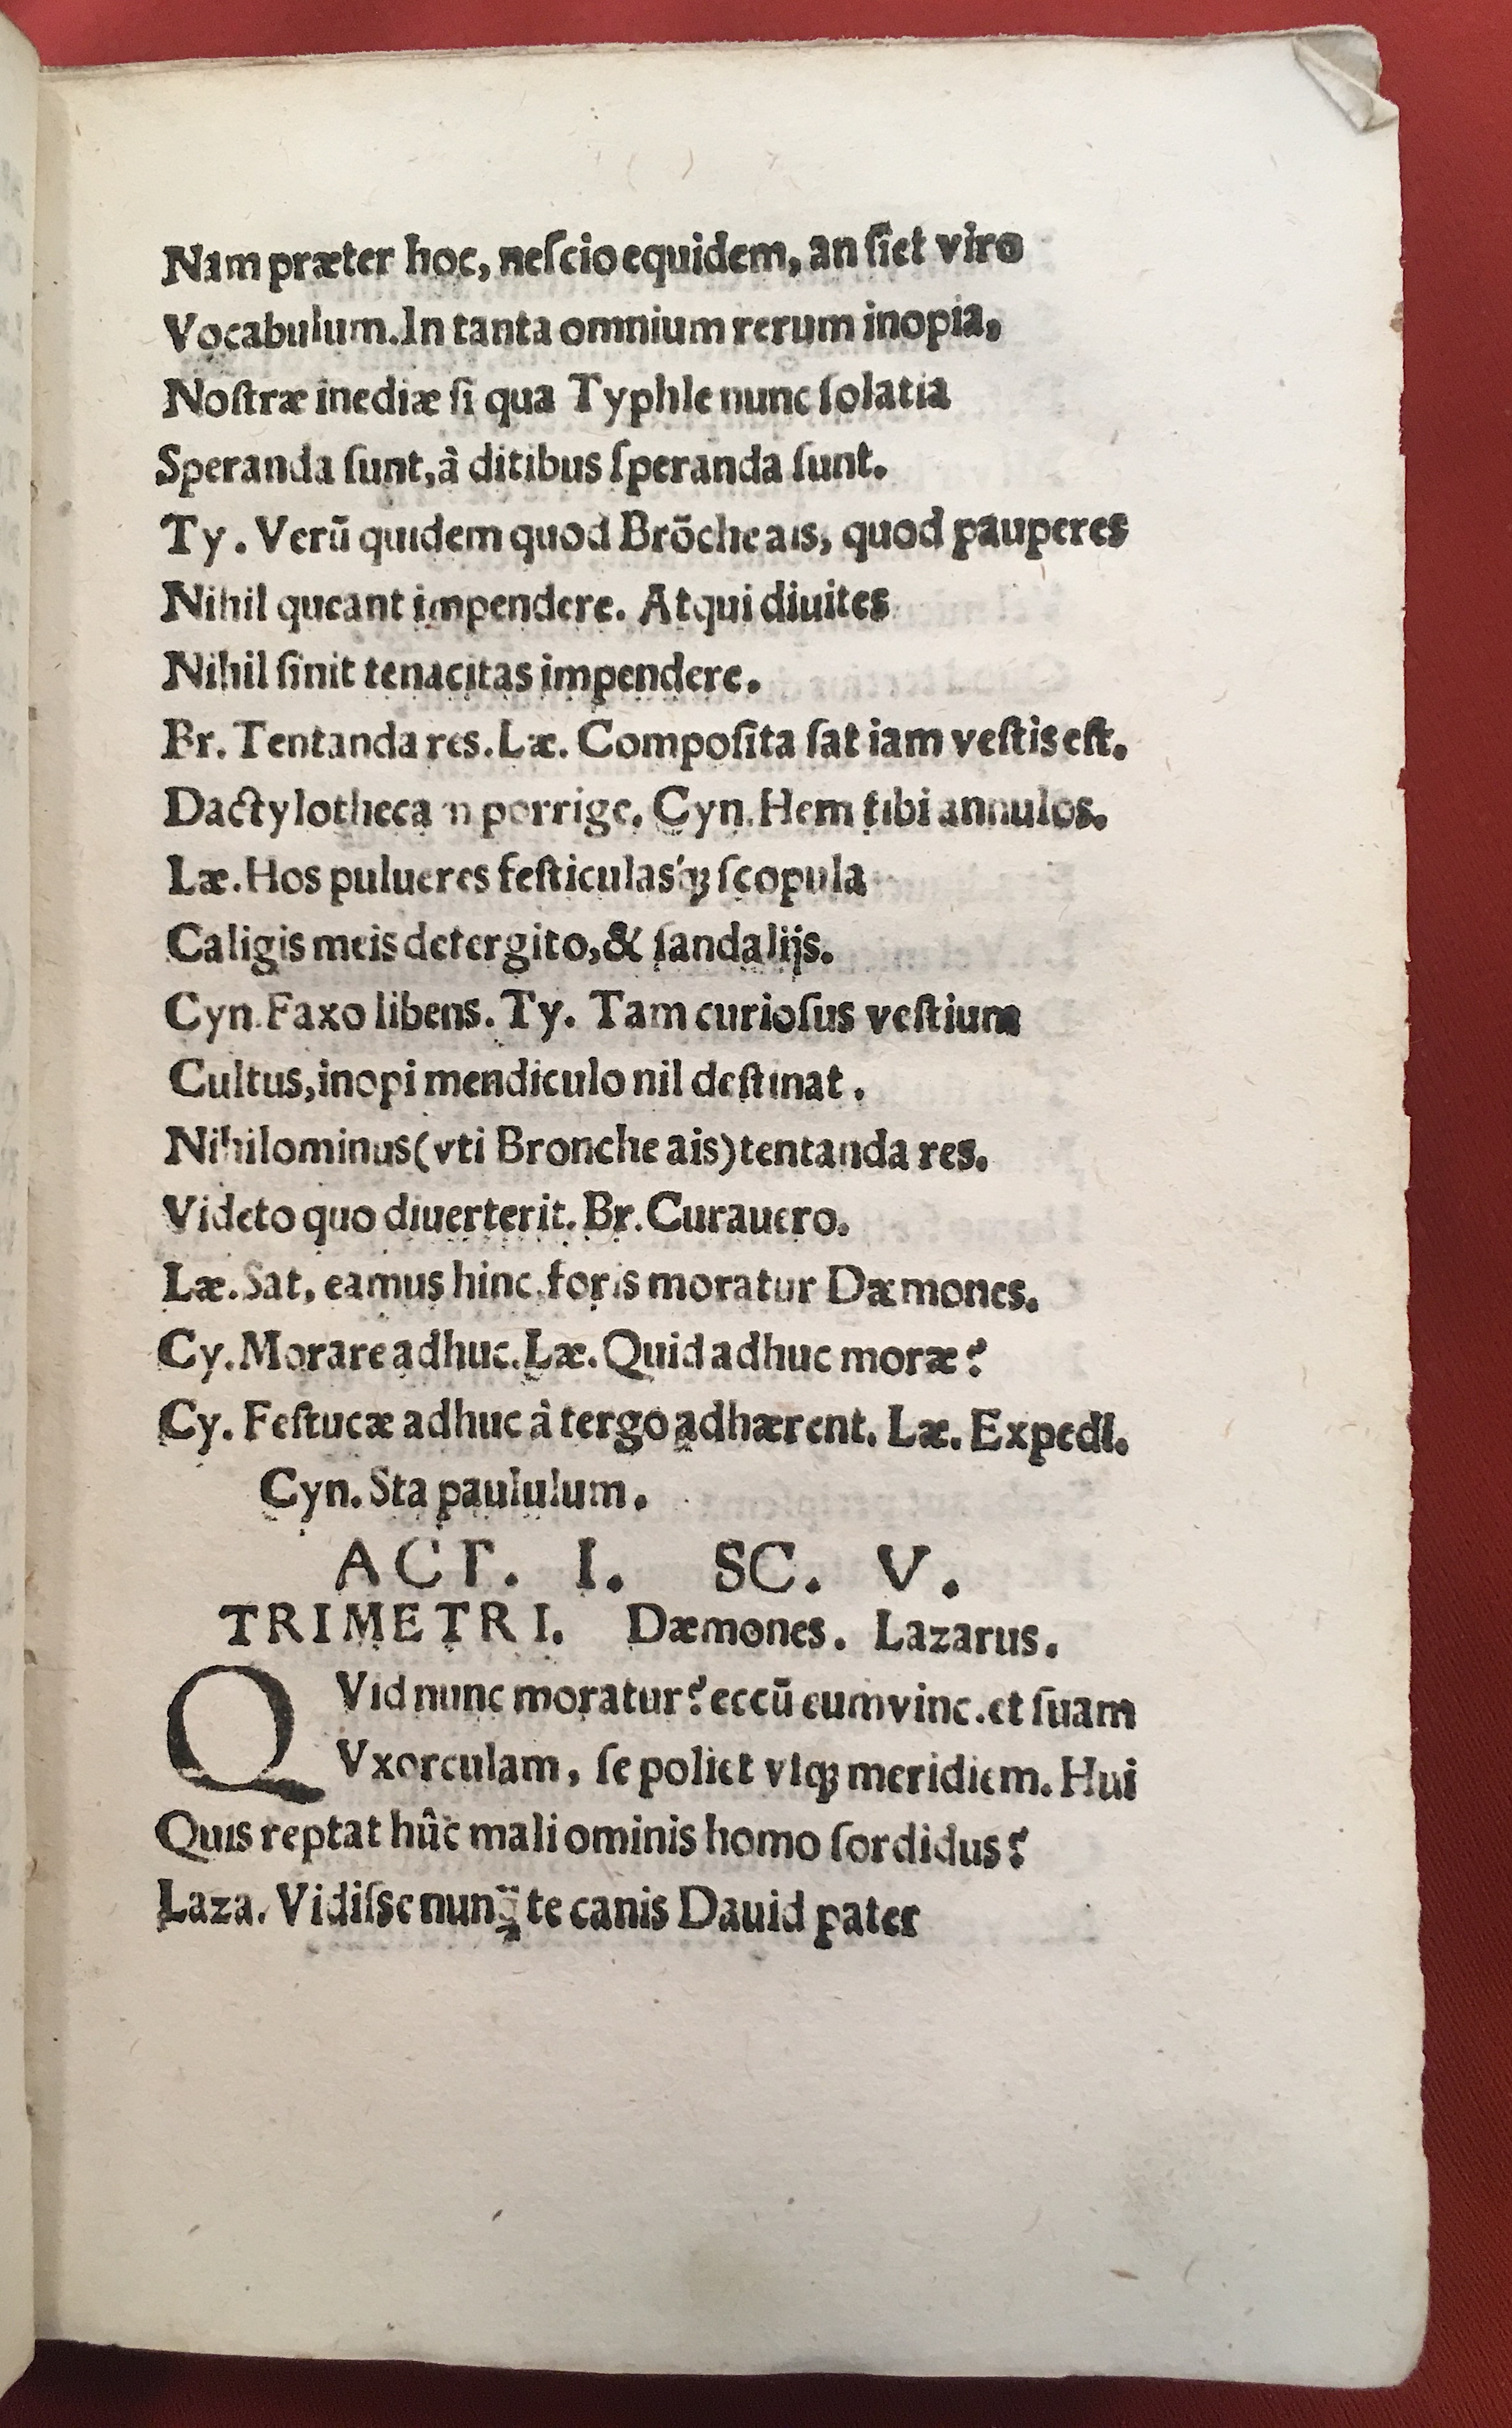 Nam præter hoc, neſcio equidem, an ſiet viro
Vocabulum. In tanta omnium rerum inopia,
Noſtræ inediæ ſi qua Typhle nunc ſolatia
Speranda ſunt, à ditibus ſperanda ſunt.
Ty. Verũ quidem quod Brõche ais, quod pauperes
Nihil queant impendere. Atqui diuites
Nihil ſinit tenacitas impendere.
Br. Tentanda res. Læ. Compoſita ſat iam veſtis eſt.
Dactylothecam porrige. Cyn. Hem tibi annulos.
Læ. Hos pulueres feſticulas'q; ſcopula
Caligis meis detergito, & ſandalijs.
Cyn. Faxo libens. Ty. Tam curioſus veſtium
Cultus, inopi mendiculo nil deſtinat.
Nihilominus (vti Bronche ais) tentanda res.
Videto quo diuerterit. Br. Curauero.
Læ. Sat, eamus hinc. foris moratur Dæmones.
Cy. Morare adhuc. Læ. Quid adhuc moræ?
Cy. Feſtucæ adhuc à tergo adhærent. Læ. Expedi.
Cyn. Sta paululum.
ACT. I. SC. V.
TRIMETRI. Dæmones. Lazarus.
QVid nunc moratur? eccũ eum vinc. et ſuam
Vxorculam, ſe poliet vſq; meridiem. Hui
Quis reptat hûc mali ominis homo ſordidus?
Laza. Vidiſse nunq̃ te canis Dauid pater